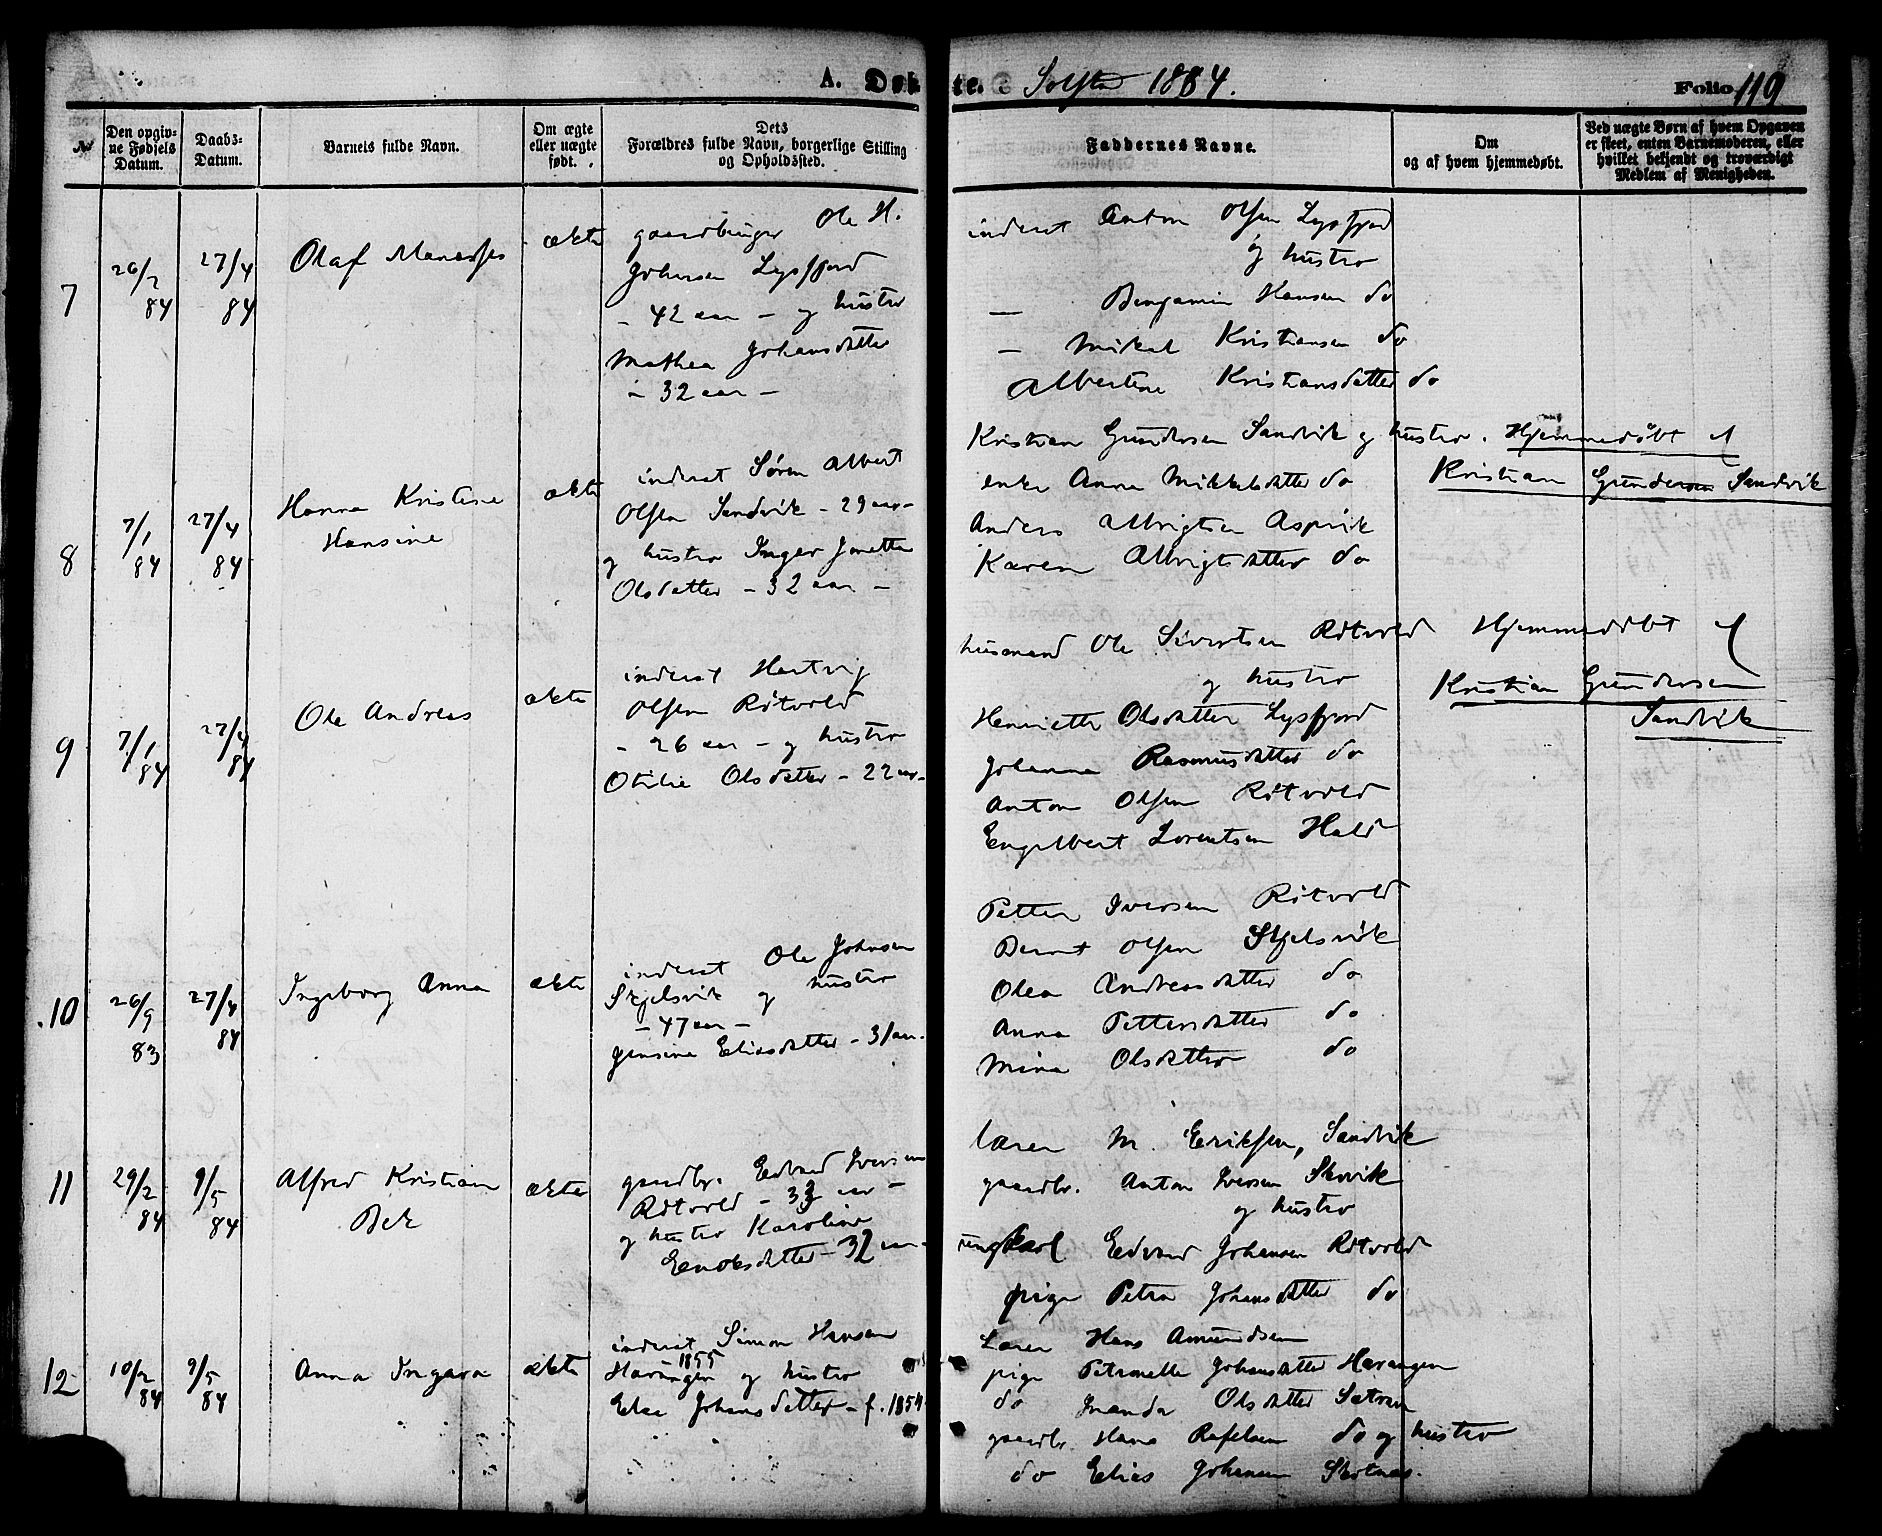 A. Døbte. Solsta 1884. Folio 119
№
Den opgiv-
ne Fødsels
Datum.
Daabs-
Datum.
Barnets fulde Navn.
Om ægte
eller uægte
født.
Dets
Forældres fulde Navn, borgerlige Stilling
og Opholdssted.
Faddernes Navne.
Om
og af hvem hjemmedøbt.
Ved uægte Børn af hvem Opgaven
er skeet, enten Barnemoderen, eller
hvilket bekjendt og troværdigt
Medlem af Menigheden.
7
26/2 84
27/4 84
Olaf Manasses
ækte
gaardbruger Ole H.
Johnsen Lysfjord
- 42 aar - og hustro
Mathea Johansdatter
- 32 aar -
inderst Anton Olsen Lysfjord
og hustro
— Benjamin Hansen do
— Mikal Kristiansen do
Albertine Kristiansdatter do
8
7/1 84
27/4 84
Hanna Kristine
Hansine
ækte
inderst Sören Albert
Olsen Sandvik - 29 aar -
og hustro Inger Jonetta
Olsdatter - 32 aar -
Kristian Gundersen Sandvik og hustro.
enke Anna Mikkelsdatter do
Anders Albrigtsen Aspvik
Karen Albrigtsdatter do
Hjemmedøbt af
Kristian Gundersen Sandvik
9
7/1 84
27/4 84
Ole Andreas
ækte
inderst Hartvig
Olsen Rötvold
- 26 aar - og hustro
Otilie Olsdatter - 22 aar -
husmand Ole Sivertsen Rötvold
og hustro
Henriette Olsdatter Lysfjord
Johanna Rasmusdatter do
Anton Olsen Rötvold
Engelbert Lorentsen Hald
Hjemmedøbt af
Kristian Gundersen
Sandvik
10
26/9 83
27/4 84
Ingeborg Anna
ækte
inderst Ole Johnsen
Skjelsvik og hustro
- 47 aar -
Jensine Eliasdatter - 31 aar.
Petter Iversen Rötvold
Bernt Olsen Skjelsvik
Olea Andreasdatter do
Anna Pettersdatter do
Mina Olsdatter do
11
29/2 84
9/5 84
Alfred Kristian
Bek
ækte
gaardbr. Edvard Iversen
Rötvold - 33 aar -
og hustro Karoline
Enoksdatter - 32 aar -
Lærer M. Eriksen, Sandvik
gaardbr. Anton Iversen Skovik
og hustro
ungkarl Edvard Johansen Rötvold
pige Petra Johansdatter do
12
10/2 84
9/5 84
Anna Ingara
ækte
inderst Simon Hansen
1855
Haringen og hustro
Elsa Johansdatter - f. 1854
Lærer Hans Amundsen
pige Petronelle Johansdatter Harangen
do Olsdatter Sætran
gaardbr. Hans Rafelsen do og hustro
do Elias Johansen Skotnes.